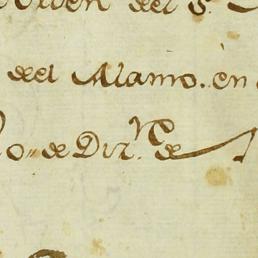 orden del S.
del Alamo. en
o" de Diz.re de